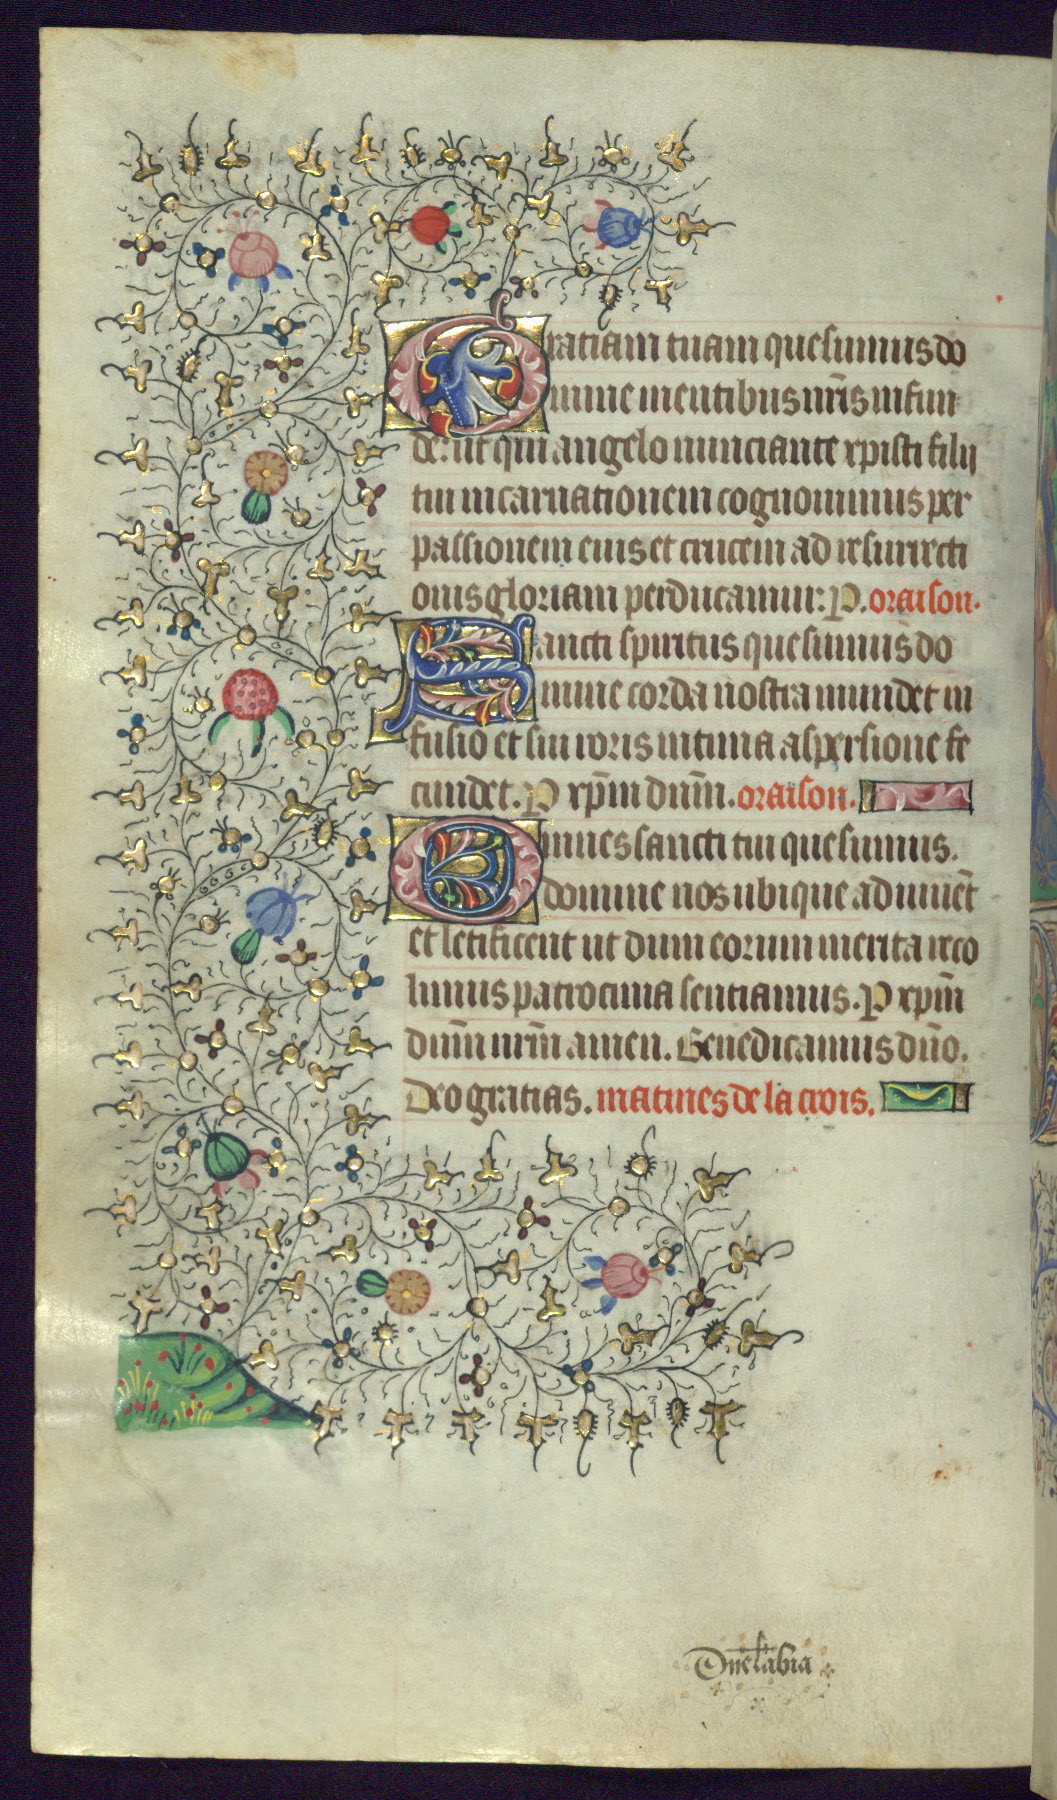 Gratiam tuam quesumus do
mine mentibus nr̄is infun
de: ut qui angelo nunciante xpisti filii
tui incarnationem cognouimus per
passionem eius et crucem ad resurrecti
onis gloriam perducamur: P. oraison.
Sancti spiritus quesumus do
mine corda nostra mundet in
fusio et sui roris intima aspersione fe
cundet. P xp̄m dnm̄. oraison.
Omnes sancti tui quesumus.
domine nos ubique adiuuēt
et letificent ut dum eorum merita reco
limus patrocinia sentiamus. P xpm̄
dnm̄ nrm̄ amen. Benedicamus dn̄o.
Deo gratias. matines de la crois.
Dn̄e labia